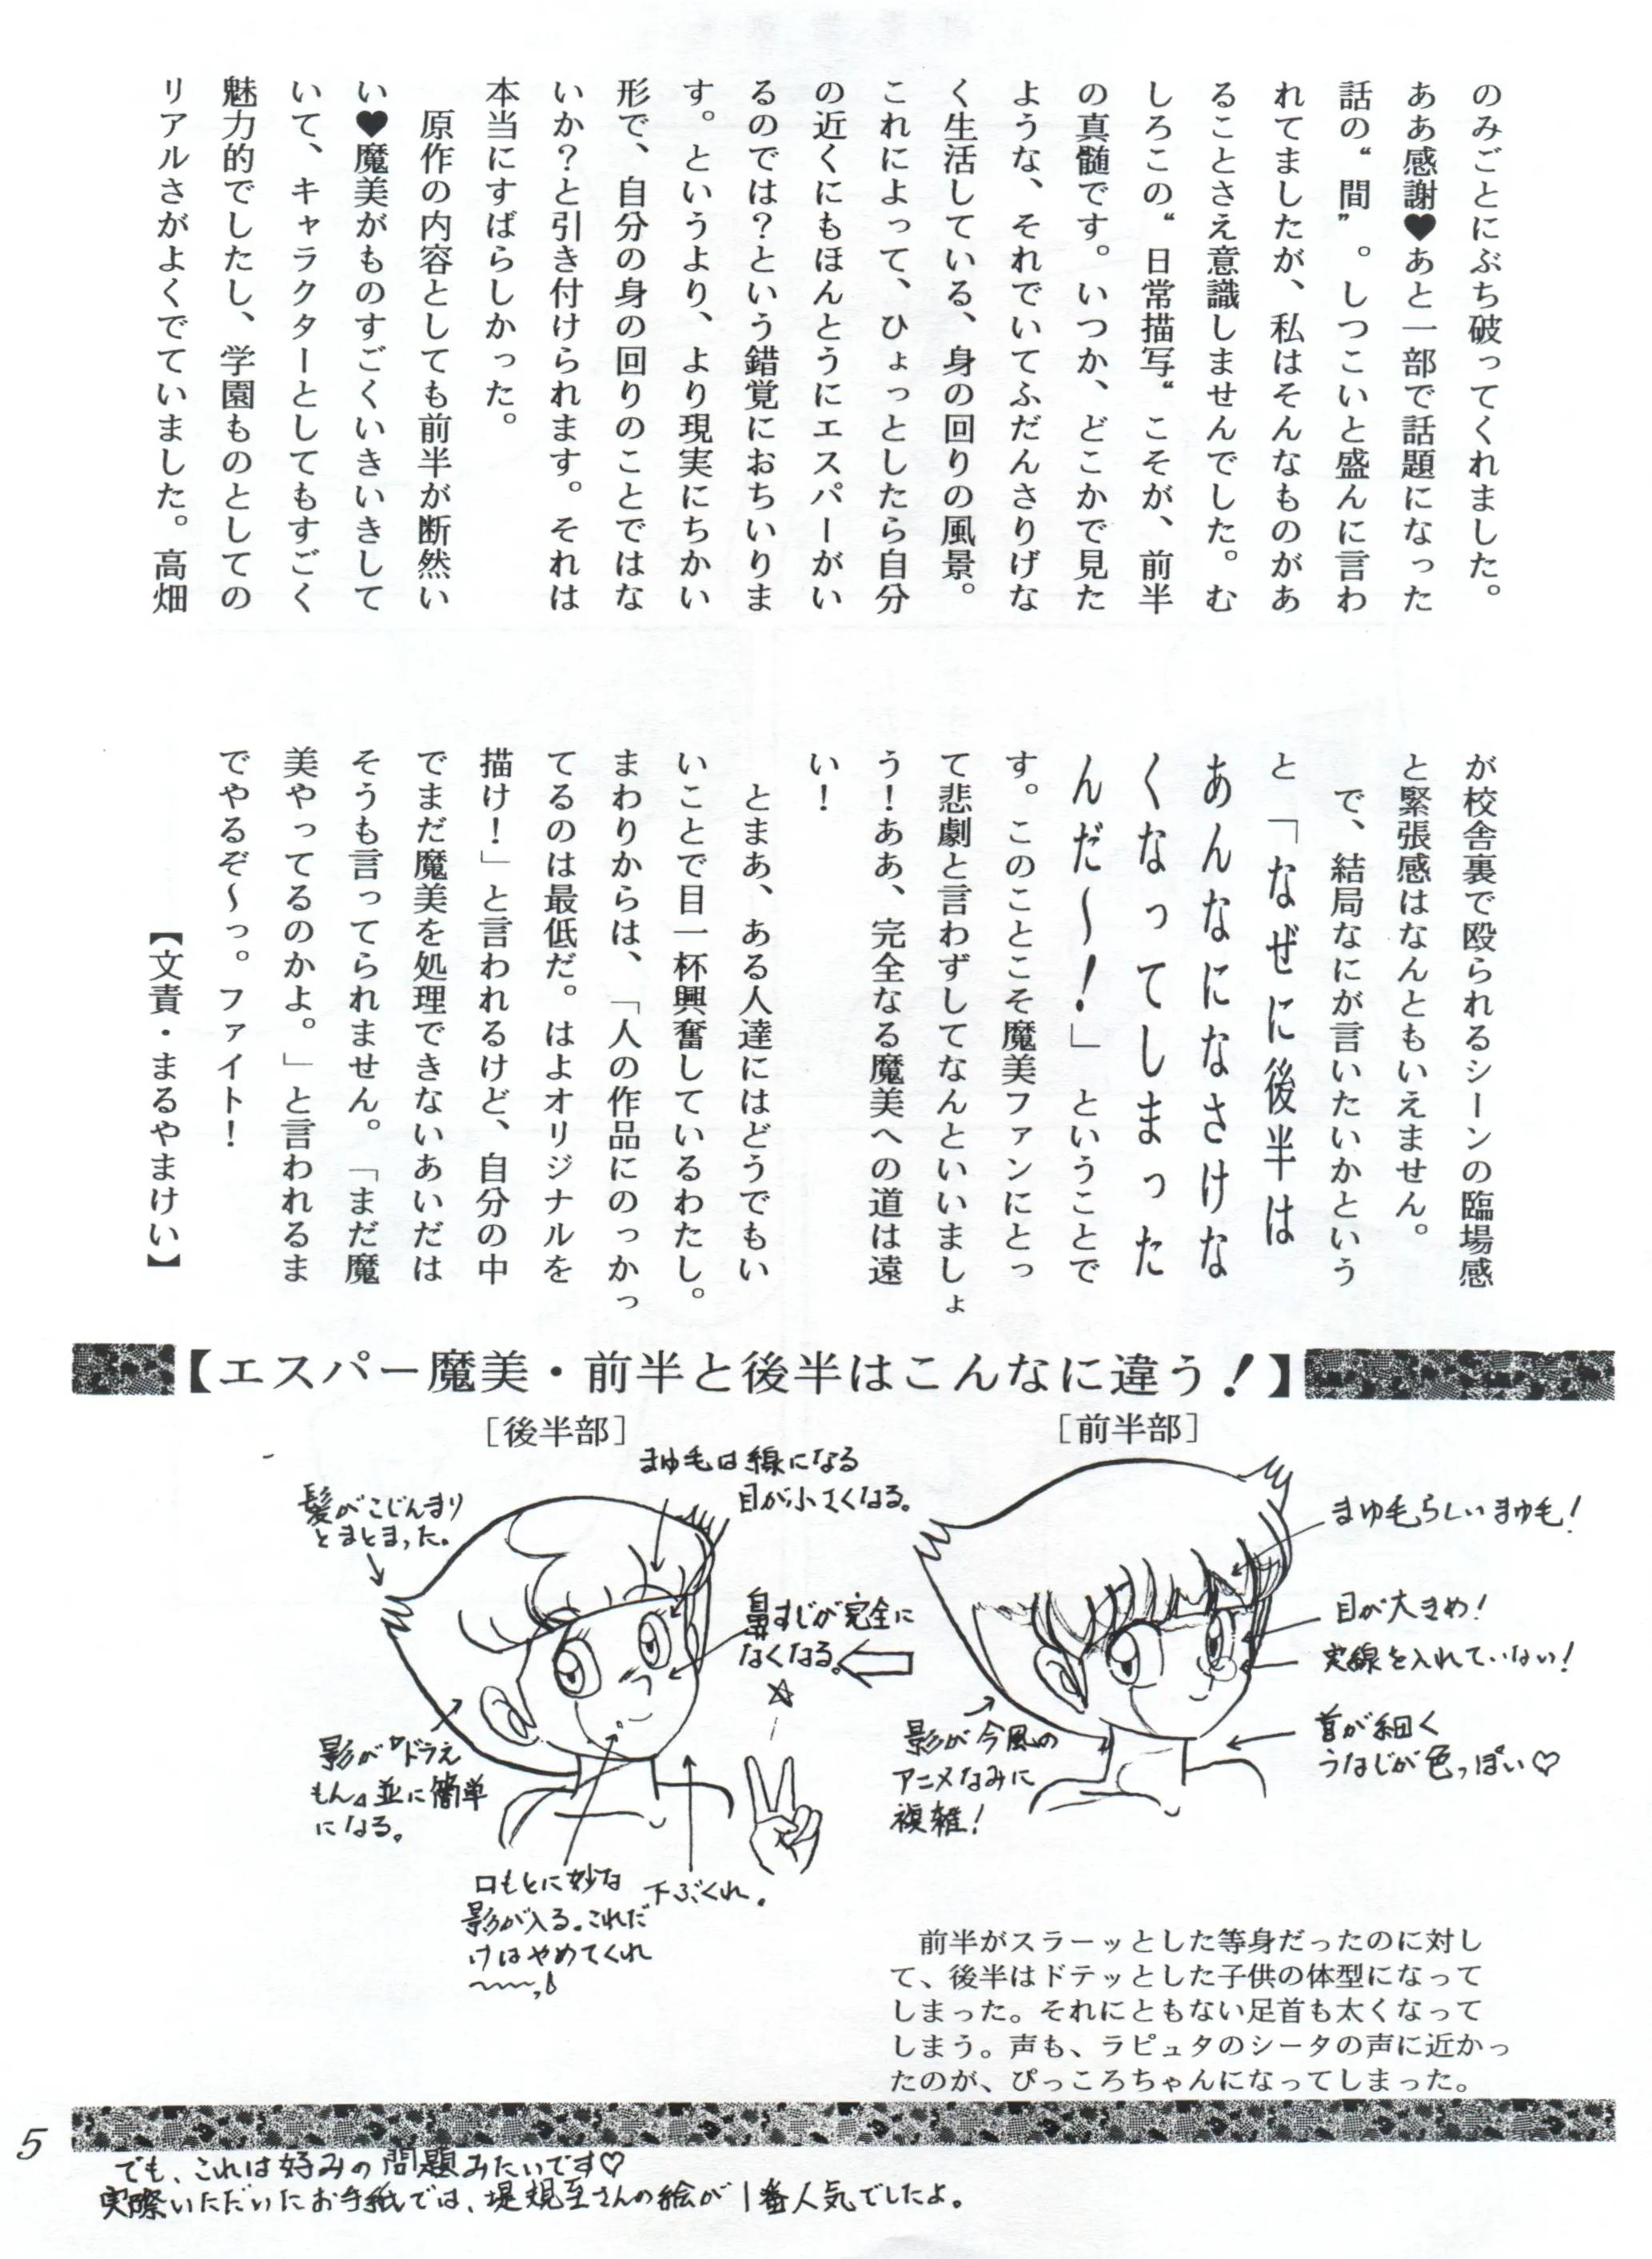 のみごとにぶち破ってくれました。
ああ感謝♥あと一部で話題になった
話の〝間〟。しつこいと盛んに言わ
れてましたが、私はそんなものがあ
ることさえ意識しませんでした。む
しろこの〝日常描写〝こそが、前半
の真髄です。いつか、どこかで見た
ような、それでいてふだんさりげな
く生活している、身の回りの風景。
これによって、ひょっとしたら自分
の近くにもほんとうにエスパーがい
るのでは?という錯覚におちいりま
す。というより、より現実にちかい
形で、自分の身の回りのことではな
いか?と引き付けられます。それは
本当にすばらしかった。
原作の内容としても前半が断然い
い♥魔美がものすごくいきいきして
いて、キャラクターとしてもすごく
魅力的でしたし、学園ものとしての
リアルさがよくでていました。高畑
が校舎裏で殴られるシーンの臨場感
と緊張感はなんともいえません。
で、結局なにが言いたいかという
と「なぜに後半は
あんなになさけな
くなってしまった
んだ〜!」ということで
す。このことこそ魔美ファンにとっ
て悲劇と言わずしてなんといいましょ
う!ああ、完全なる魔美への道は遠
い!
とまあ、ある人達にはどうでもい
いことで目一杯興奮しているわたし。
まわりからは、「人の作品にのっかっ
てるのは最低だ。はよオリジナルを
描け!」と言われるけど、自分の中
でまだ魔美を処理できないあいだは
そうも言ってられません。「まだ魔
美やってるのかよ。」と言われるま
でやるぞ〜っ。ファイト!
【文責・まるやまけい】
【エスパー魔美・前半と後半はこんなに違う!】
[前半部]
まゆ毛らしいまゆ毛!
目が大きめ!
実線を入れていない!
首が細く
うなじが色っぽい♡
影が今風の
アニメなみに
複雑!
[後半部]
まゆ毛は線になる
目が小さくなる。
髪がこじんまり
とまとまった。
鼻すじが完全に
なくなる。
影が『ドラえ
もん』並に簡単
になる。
口もとに妙な
影が入る。これだ
けはやめてくれ
〜〜〜っ
下ぶくれ。
前半がスラーッとした等身だったのに対し
て、後半はドテッとした子供の体型になって
しまった。それにともない足首も太くなって
しまう。声も、ラピュタのシータの声に近かっ
たのが、ぴっころちゃんになってしまった。
5
でも、これは好みの問題みたいです♡
実際いただいたお手紙では、堤規至さんの絵が1番人気でしたよ。